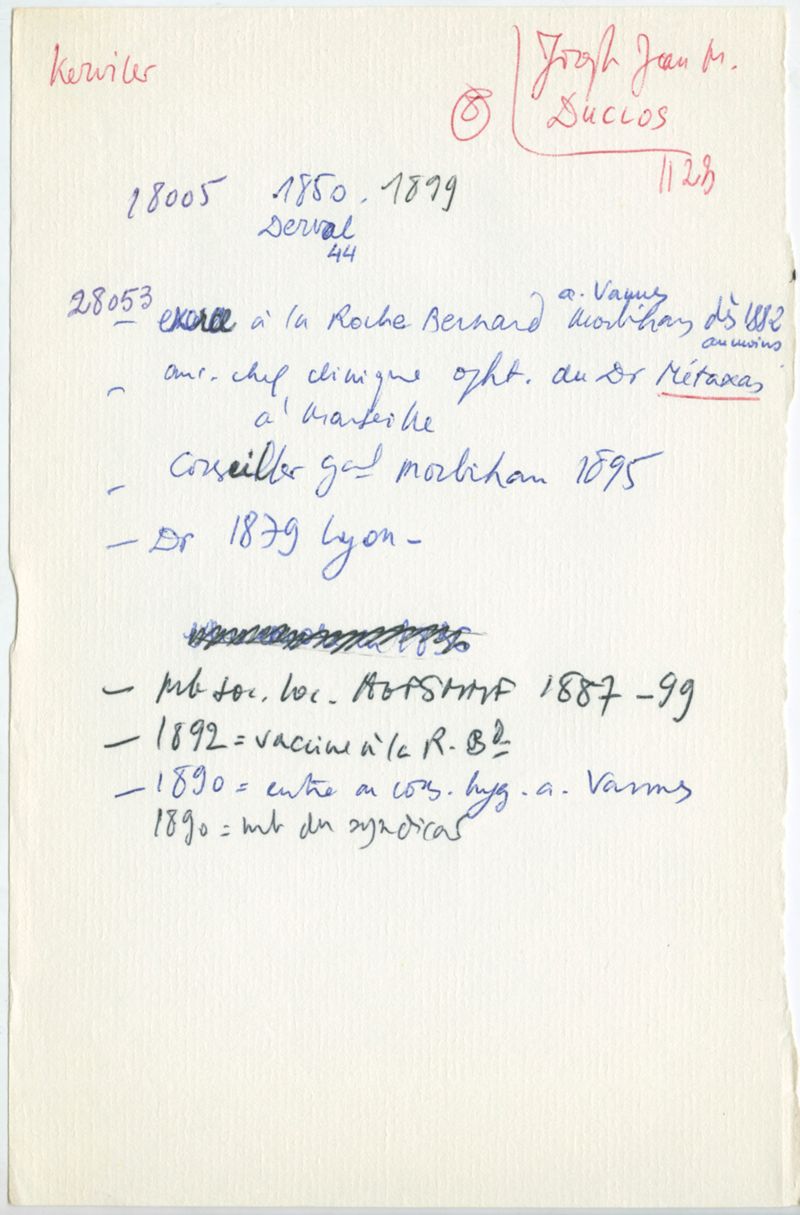 Kerviler
Joseph Jean M.
⑧ Duclos
112B
18005 1850. 1899
Derval
44
28053
a. Vannes
- exerce à la Roche Bernard Morbihan dès 1882
au moins
- anc. chef clinique opht. du Dr Métaxas
à Marseille
- Conseiller gal Morbihan 1895
- Dr 1879 Lyon -
- mb soc. loc. 1887 - 99
- 1892 = vaccine à la R. Bd
- 1890 = entre au cons. hyg. a. Vannes
1890 = mb du syndicat